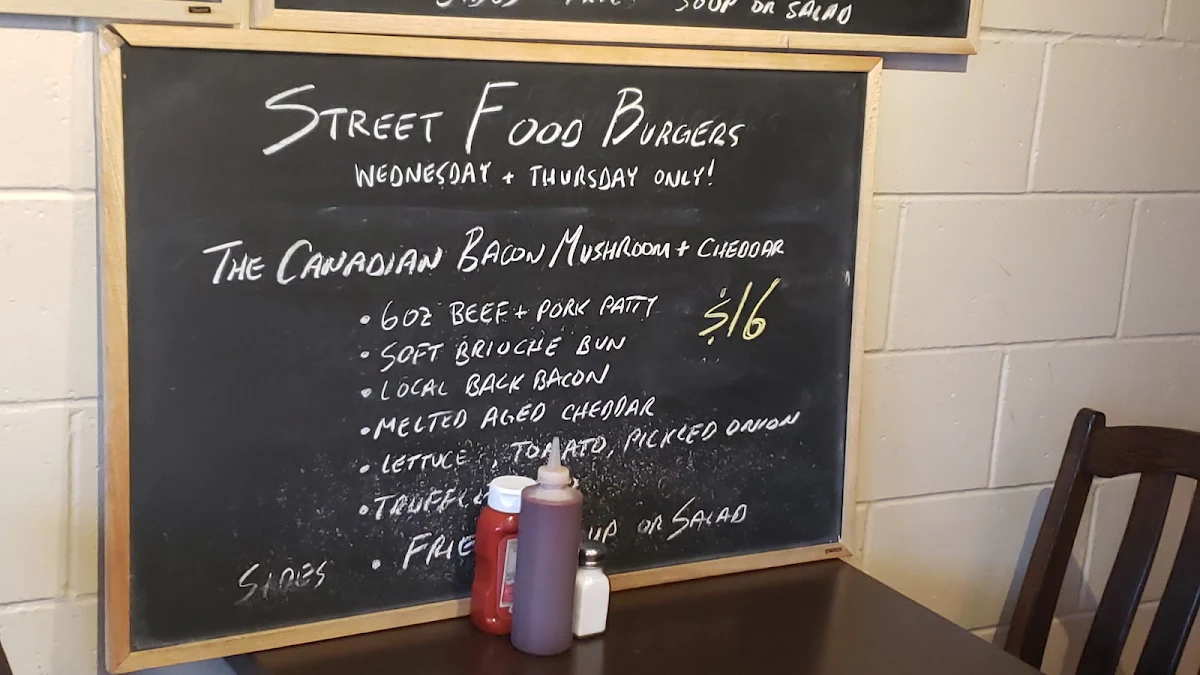 SOUP OR SALAD
STREET FOOD BURGERS
WEDNESDAY + THURSDAY ONLY!
THE CANADIAN BACON MUSHROOM + CHEDDAR
$16
• 6OZ BEEF + PORK PATTY
• SOFT BRIOCHE BUN
• LOCAL BACK BACON
• MELTED AGED CHEDDAR
• LETTUCE, TOMATO, PICKLED ONION
SIDES • FRIE UP OR SALAD